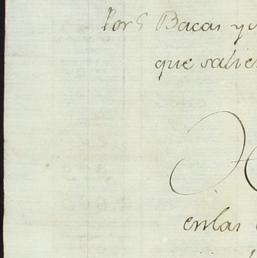 Por Bacas y
que salie
H
enlas